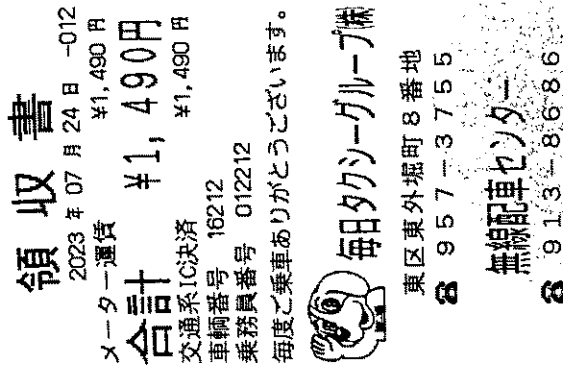 領収書
2023年07月24日 -012
メーター運賃 ¥1,490円
合計 ¥1,490円
交通系IC決済 ¥1,490円
車輌番号 16212
乗務員番号 012212
毎度ご乗車ありがとうございます。
毎日タクシーグループ㈱
東区東外堀町8番地
☎ 957-3755
無線配車センター
☎ 913-8686